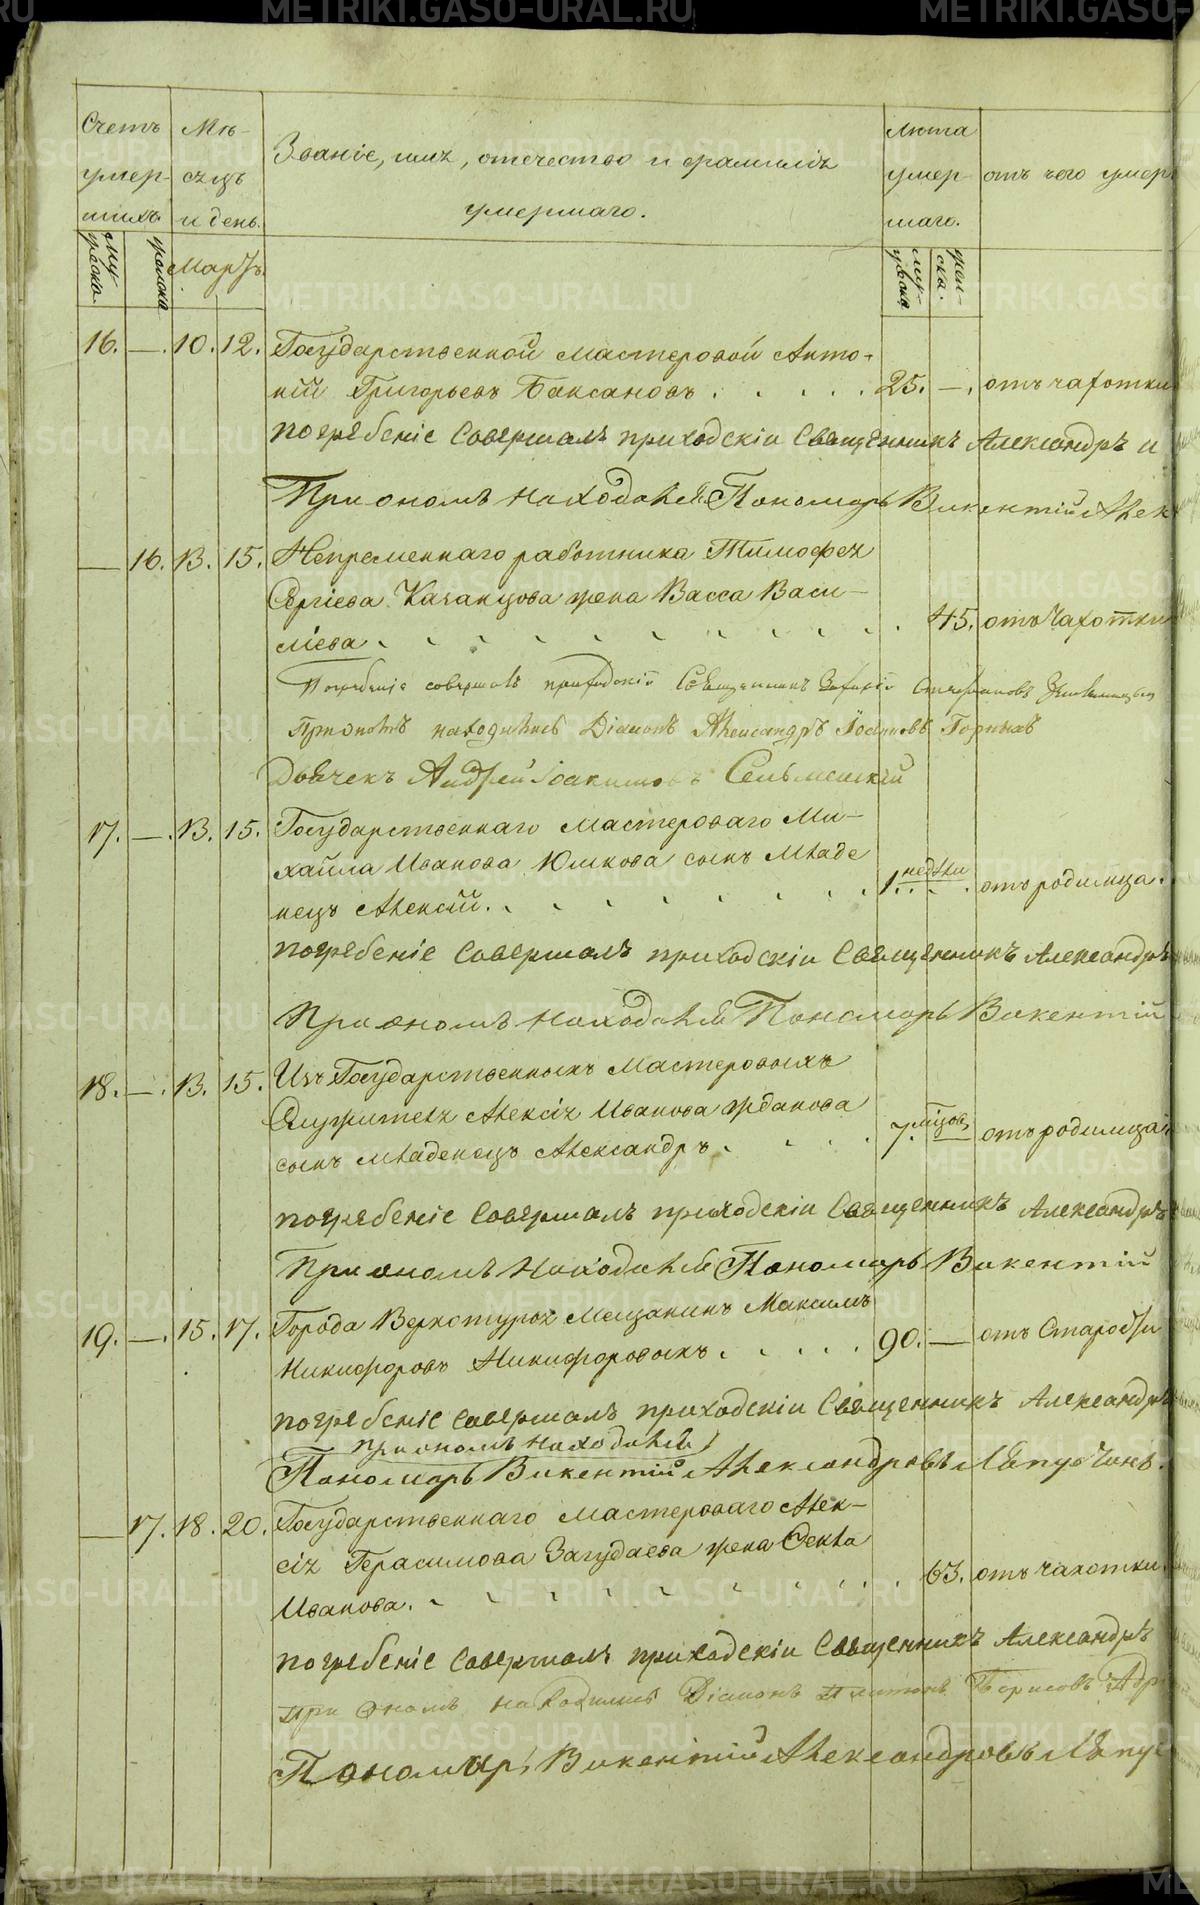 METRIKI.GASO-URAL.RU
Счетъ умер-шихъ
Мѣ-сяцъ и день.
Званіе, имя, отечество и фамилія умершаго.
Лѣта умер-шаго.
отъ чего умер
мужска. женска
Мартъ.
муж-ска. жен-ска.
16. —. 10. 12. Государственной мастеровой Анто-
ній Григорьевъ Баксановъ . . . . . 25. —. отъ чахотки
погребеніе Совершалъ приходскіи Священникъ Александръ и
При ономъ находился Пономарь Викентій Алек
— 16. 13. 15. Непременнаго работника Тимофея
Сергіева Казанцова жена Васса Васи-
ліева . . . . . . . . . 45. отъ Чахотки
Погребеніе совершалъ приходскій Священникъ
При ономъ находились Діаконъ Александръ Іоанновъ
Дьячекъ Андрей Іоакимовъ
17. —. 13. 15. Государственнаго мастероваго Ми-
хайла Иванова Юшкова сынъ Младе
нецъ Алексій . . . . . . . 1. недѣли отъ родимца.
погребеніе Совершалъ приходскіи Священникъ Александръ
При ономъ находился Пономарь Викентій
18. —. 13. 15. Изъ Государственныхъ Мастеровыхъ
Служителя Алексія Иванова Жданова
сынъ младенецъ Александръ . . . . 7. мѣсяцов, отъ родимца.
погребеніе Совершалъ приходскіи Священникъ Александръ
При ономъ находился Пономарь Викентій
19. —. 15. 17. Города Верхотурья Мещанинъ Максимъ
Никифоровъ Никифоровыхъ . . . . . 90. — отъ Старости
погребеніе совершалъ приходскіи Священникъ Александръ
при ономъ находился
Пономарь Викентій Александровъ Ляпусчинъ.
— 17. 18. 20. Государственнаго мастероваго Алек-
сія Герасимова Загудаева жена Фекла
Иванова . . . . . . . . 63. отъ чахотки.
погребеніе Совершалъ приходскіи Священникъ Александръ
при Ономъ находились Діаконъ Платонъ Борисовъ
Пономарь Викентій Александровъ Ляпус